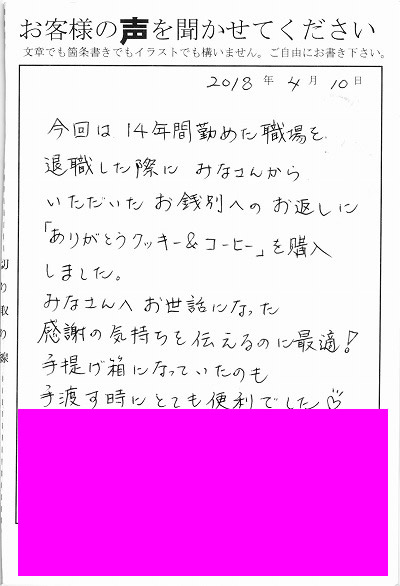 お客様の声を聞かせてください
文章でも箇条書きでもイラストでも構いません。ご自由にお書き下さい。
2018 年 4 月 10 日
今回は 14年間勤めた職場を
退職した際に みなさんから
いただいた お銭別への お返しに
「ありがとうクッキー&コーヒー」を購入
しました。
みなさんへ お世話になった
感謝の気持ちを伝えるのに最適!
手提げ箱になっていたのも
手渡す時にとても便利でした♡
切り取り線